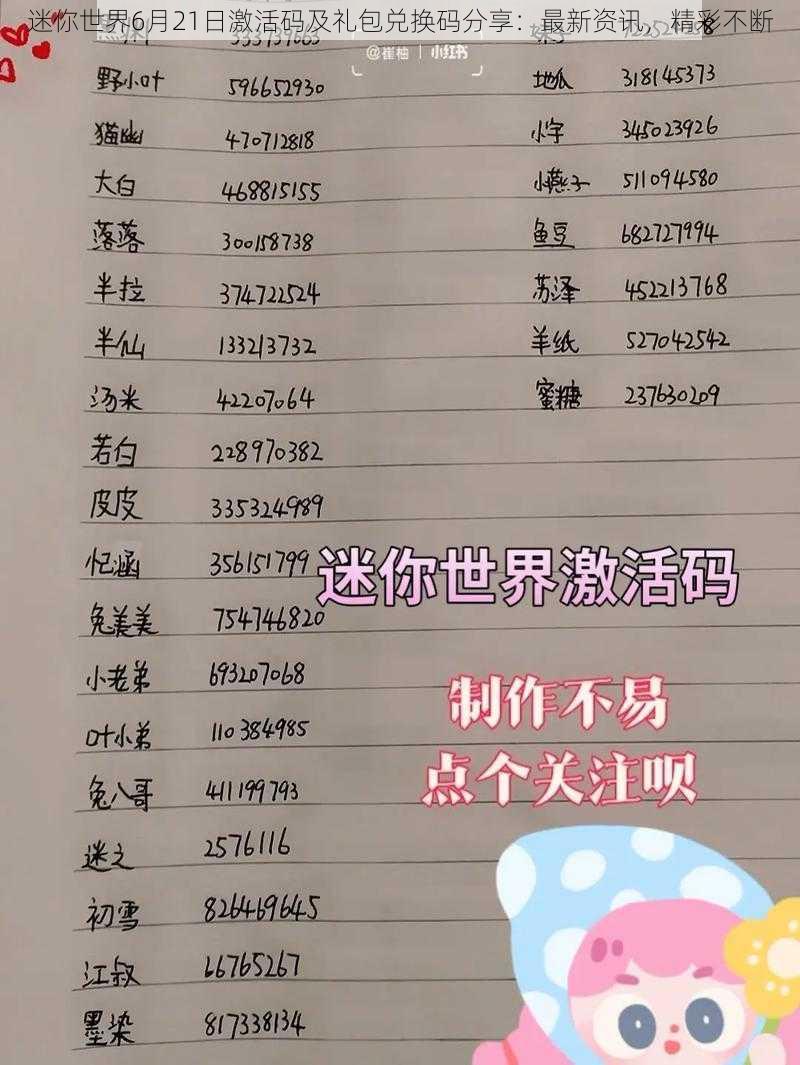 迷你世界6月21日激活码及礼包兑换码分享：最新资讯，精彩不断
@崔柚 | 小红书
野小叶 596652930
地瓜 318145373
猫幽 470712818
小字 345023926
大白 468815155
小燕子 511094580
落落 300158738
鱼豆 682727994
半拉 374722524
苏泽 452213768
半仙 133213732
羊纸 527042542
汤米 42207064
蜜糖 237630209
若白 228970382
皮皮 335324989
忆涵 356151799
迷你世界激活码
兔美美 754746820
小老弟 693207068
制作不易
叶小弟 110384985
点个关注呗
兔八哥 411199793
迷之 2576116
初雪 826469645
江叔 66765267
墨染 817338134